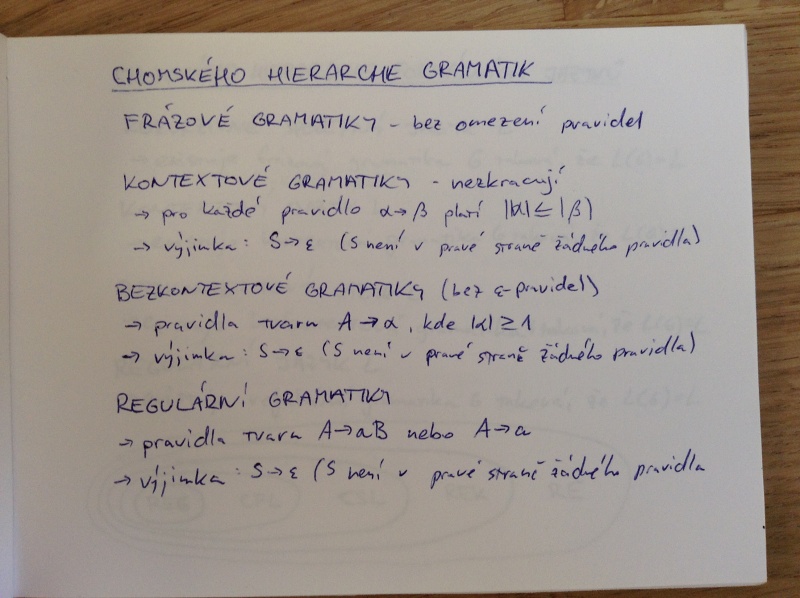 CHOMSKÉHO HIERARCHIE GRAMATIK
FRÁZOVÉ GRAMATIKY - bez omezení pravidel
KONTEXTOVÉ GRAMATIKY - nezkracují
→ pro každé pravidlo α→β platí |α|≤|β|
→ výjimka: S→ε (S není v pravé straně žádného pravidla)
BEZKONTEXTOVÉ GRAMATIKY (bez ε-pravidel)
→ pravidla tvaru A→α, kde |α|≥1
→ výjimka: S→ε (S není v pravé straně žádného pravidla)
REGULÁRNÍ GRAMATIKY
→ pravidla tvaru A→aB nebo A→a
→ výjimka: S→ε (S není v pravé straně žádného pravidla